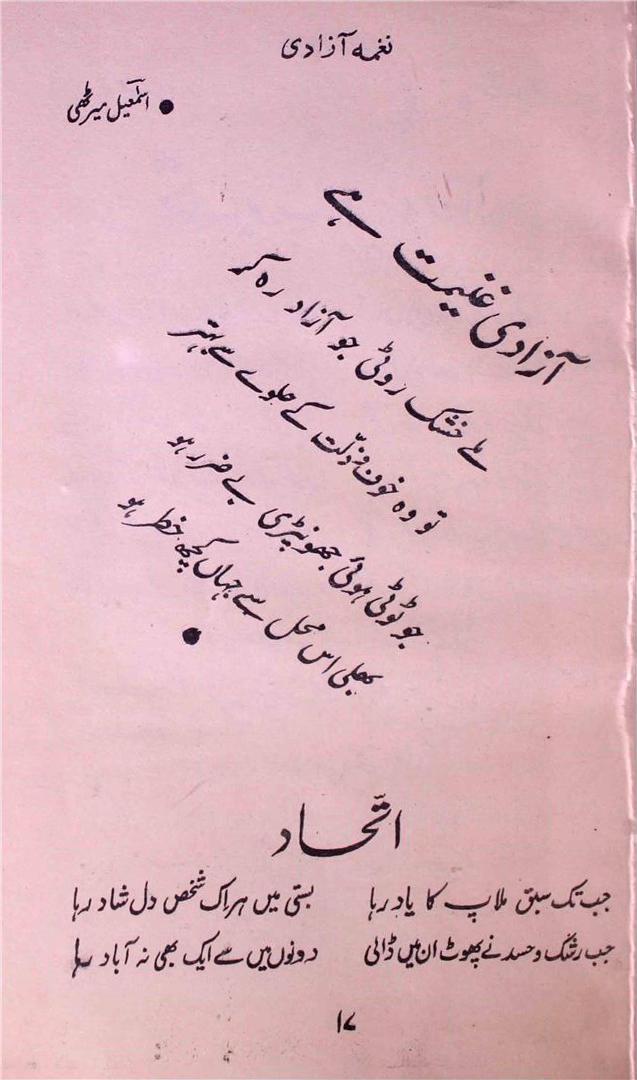 نغمہ آزادی
● اسمٰعیل میرٹھی
آزادی غنیمت ہے
ملے خشک روٹی جو آزاد رہ کر
تو وہ خوف و ذلّت کے حلوے سے بہتر
جو ٹوٹی ہوئی جھونپڑی بے ضرر ہو
بھلی اس محل سے جہاں کچھ خطر ہو
●
اتّحاد
جب تک سبق ملاپ کا یاد رہا بستی میں ہر اک شخص دل شاد رہا
جب رشک و حسد نے پھوٹ ان میں ڈالی دونوں میں سے ایک بھی نہ آباد رہا
۱۷